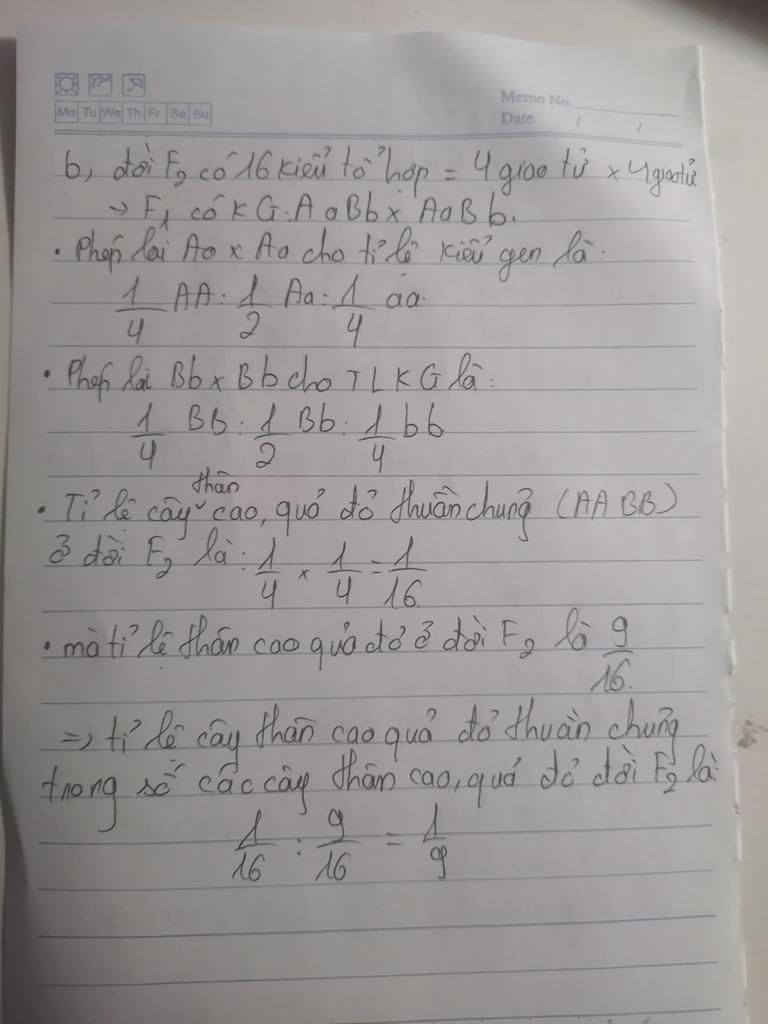 Mo Tu We Th Fr Sa Su
Memo No.
Date / /
b, đời F₂ có 16 kiểu tổ hợp = 4 giao tử × 4 giao tử
→ F₁ có KG: AaBb × AaBb.
• Phép lai Aa × Aa cho tỉ lệ kiểu gen là:
1/4 AA : 1/2 Aa : 1/4 aa.
• Phép lai Bb × Bb cho TLKG là:
1/4 BB : 1/2 Bb : 1/4 bb
• Tỉ lệ cây thân cao, quả đỏ thuần chủng (AABB)
ở đời F₂ là: 1/4 × 1/4 = 1/16
• mà tỉ lệ thân cao quả đỏ ở đời F₂ là 9/16.
=> tỉ lệ cây thân cao quả đỏ thuần chủng
trong số các cây thân cao, quả đỏ đời F₂ là:
1/16 : 9/16 = 1/9